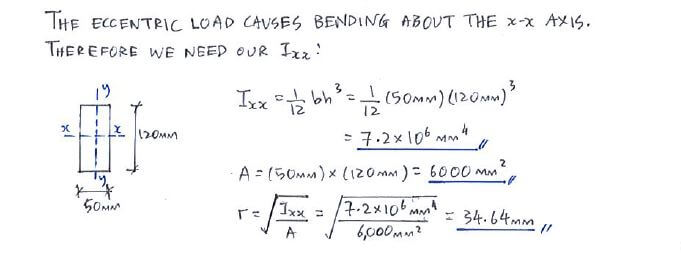 THE ECCENTRIC LOAD CAUSES BENDING ABOUT THE x-x AXIS.
THEREFORE WE NEED OUR Ixx:
Ixx = 1/12 bh³ = 1/12 (50MM)(120MM)³
= 7.2×10⁶ MM⁴
A = (50MM) × (120MM) = 6000 MM²
r = √(Ixx/A) = √(7.2×10⁶ MM⁴/6,000MM²) = 34.64MM
y
x x 120MM
y
50MM